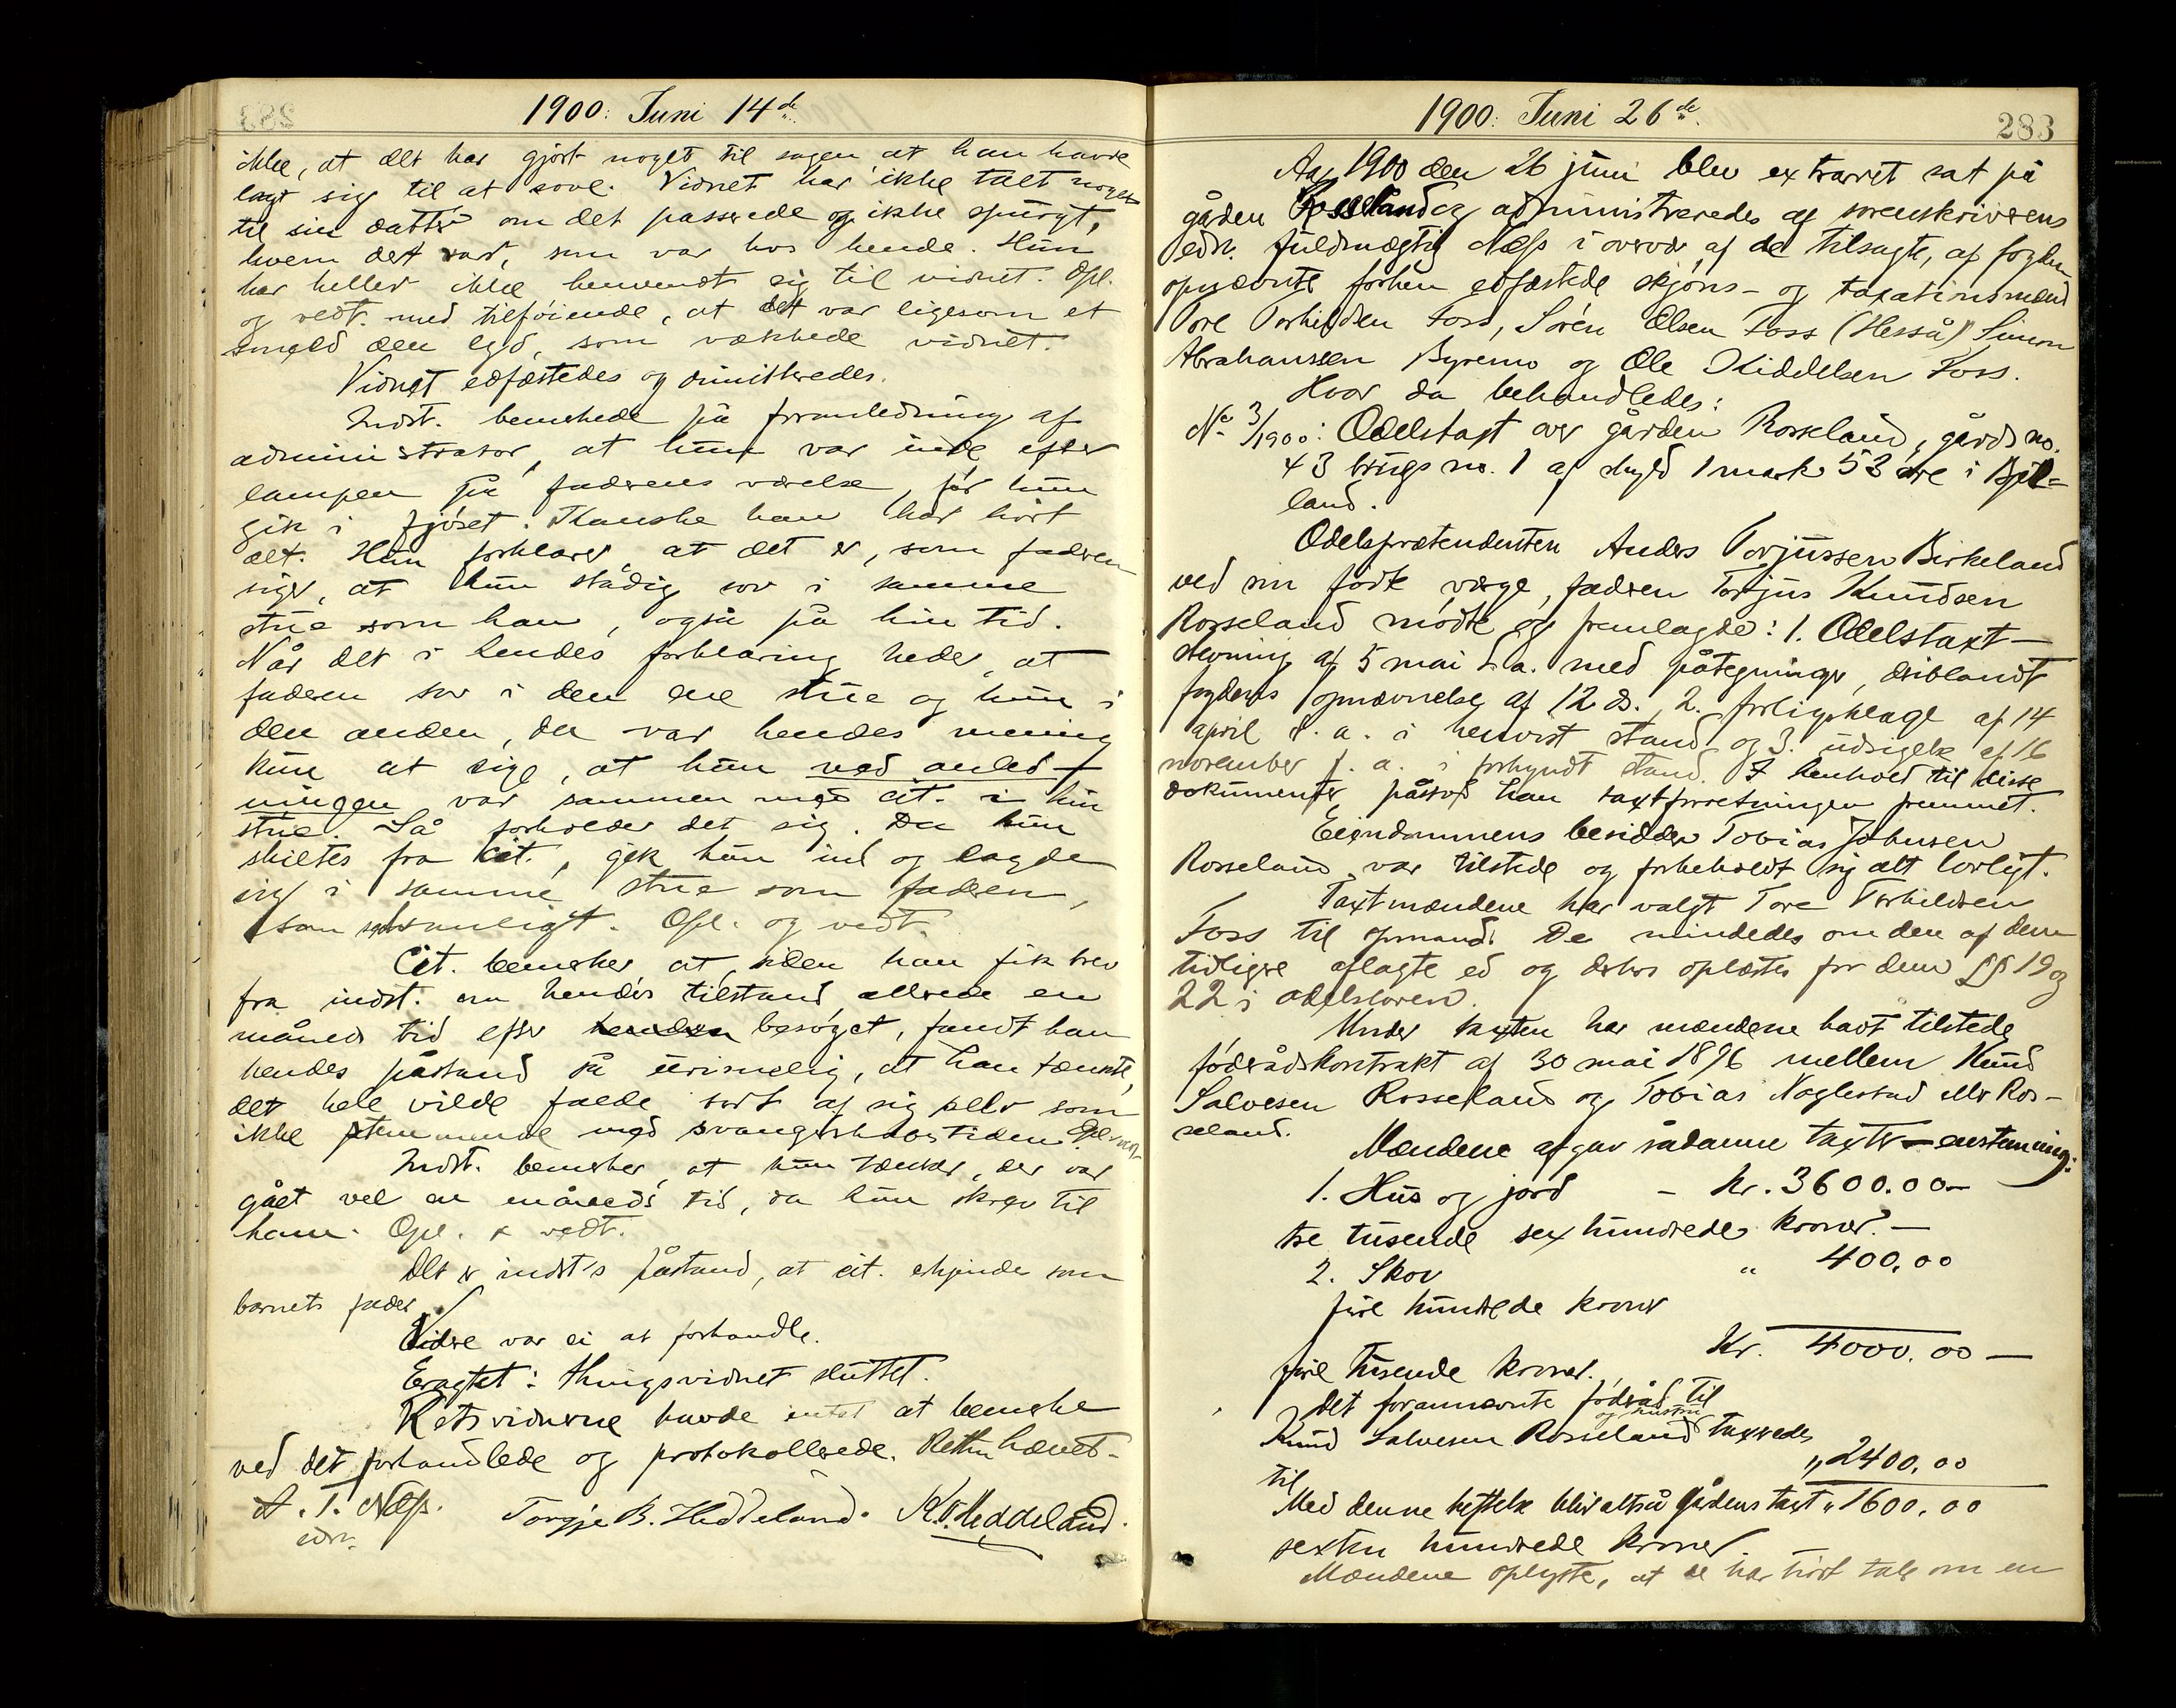 1900: Juni 14de
ikke, at det har gjort noget til sagen at han havde
lagt sig til at sove. Vidnet har ikke talt noget
til sin datter om det passerede og ikke spurgt,
hvem det var, som var hos hende. Hun
har heller ikke henvendt sig til vidnet. Opl.
og vedt. med tilføiende, at det var ligesom et
smeld den lyd, som vækkede vidnet.
Vidnet edfæstedes og dimitteredes.
Indst. bemerkede på foranledning af
administrator, at hun var inde efter
lampen på faderens værelse, før hun
gik i fjøset. Kanske han har hørt
det. Hun forklarer, at det er, som faderen
siger, at hun stådig sov i samme
stue som han, også på hin tid.
Når det i hendes forklaring heder, at
faderen sov i den ene stue og hun i
den anden, da var hendes mening
kun at sige, at hun ved anled-
ningen var sammen med cit. i hin
stue. Så forholder det sig. Da hun
skiltes fra cit., gik hun ind og lagde
sig i samme stue som faderen,
som sedvanligt. Opl. og vedt.
Cit. bemerker, at, siden han fik brev
fra indst. om hendes tilstand allerede en
måneds tid efter besøget, fandt han
hendes påstand så urimelig, at han tænkte,
det hele vilde falde bort af sig selv som
ikke stemmende med svangerskabstiden. Opl.
Indst. bemerker, at hun tænker, der var
gået vel en måneds tid, da hun skrev til
ham. Opl. & vedt.
Det er indst's påstand, at cit. erkjendes som
barnets fader.
Videre var ei at forhandle.
Eragtet: thingsvidnet sluttet.
Retsvidnerne havde intet at bemerke
ved det forhandlede og protokollerede. Retten hævet-
A. T. Næss.
edsv.
Torgje B. Heddeland. K. T. Heddeland.
1900: Juni 26de.
283
Aar 1900 den 26 juni blev extraret sat på
gården Rosseland og administreredes af sorenskriverens
edsv. fuldmægtig Næss i overvær af de tilsagte, af fogden
opnævnte forhen edfæstede skjøns- og taxationsmænd
Tore Torkildsen Foss, Søren Olsen Foss (Hesså) Simon
Abrahamsen Byremo og Ole Kiddelsen Foss.
Hvor da behandledes:
No 3/1900: Odelstaxt over gården Rosseland, gårds no.
43 brugs no. 1 af skyld 1 mark 53 øre i Bjel-
land.
Odelsprætendenten Anders Torjussen Birkeland
ved sin fødte verge, faderen Torjus Knudsen
Rosseland mødte og fremlagde: 1. Odelstaxt-
stevning af 5 mai d. a. med påtegninger, deriblandt
fogdens opnævnelse af 12 ds., 2. forligsklage af 14
april d. a. i henvist stand og 3. udsigelse af 16
november f. a. i forkyndt stand. I henhold til disse
dokumenter påstod han taxtforretningen fremmet.
Eiendommens besidder Tobias Johnsen
Rosseland var tilstede og forbeholdt sig alt lovligt.
Taxtmændene har valgt Tore Torkildsen
Foss til opmand. De mindedes om den af dem
tidligere aflagte ed og derhos oplæstes for dem §§ 19 og
22 i odelsloven.
Under taxten har mændene havt tilstede
føderådskontrakt af 30 mai 1896 mellem Knud
Salvesen Rosseland og Tobias Naglestad eller Ros-
seland.
Mændene afgav sådanne taxter - enstemmig:
1. Hus og jord - Kr. 3600.00-
tre tusende sex hundrede kroner.-
2. Skov " 400.00
fire hundrede kroner
Kr. 4000.00-
fire tusende kroner.
Det forannævnte føderåd til
Knud Salvesen Rosseland og hustru taxeredes
til " 2400.00
Med denne heftelse bliver altså gårdens taxt " 1600.00
sexten hundrede kroner
Mændene oplyste, at de har hørt tale om en